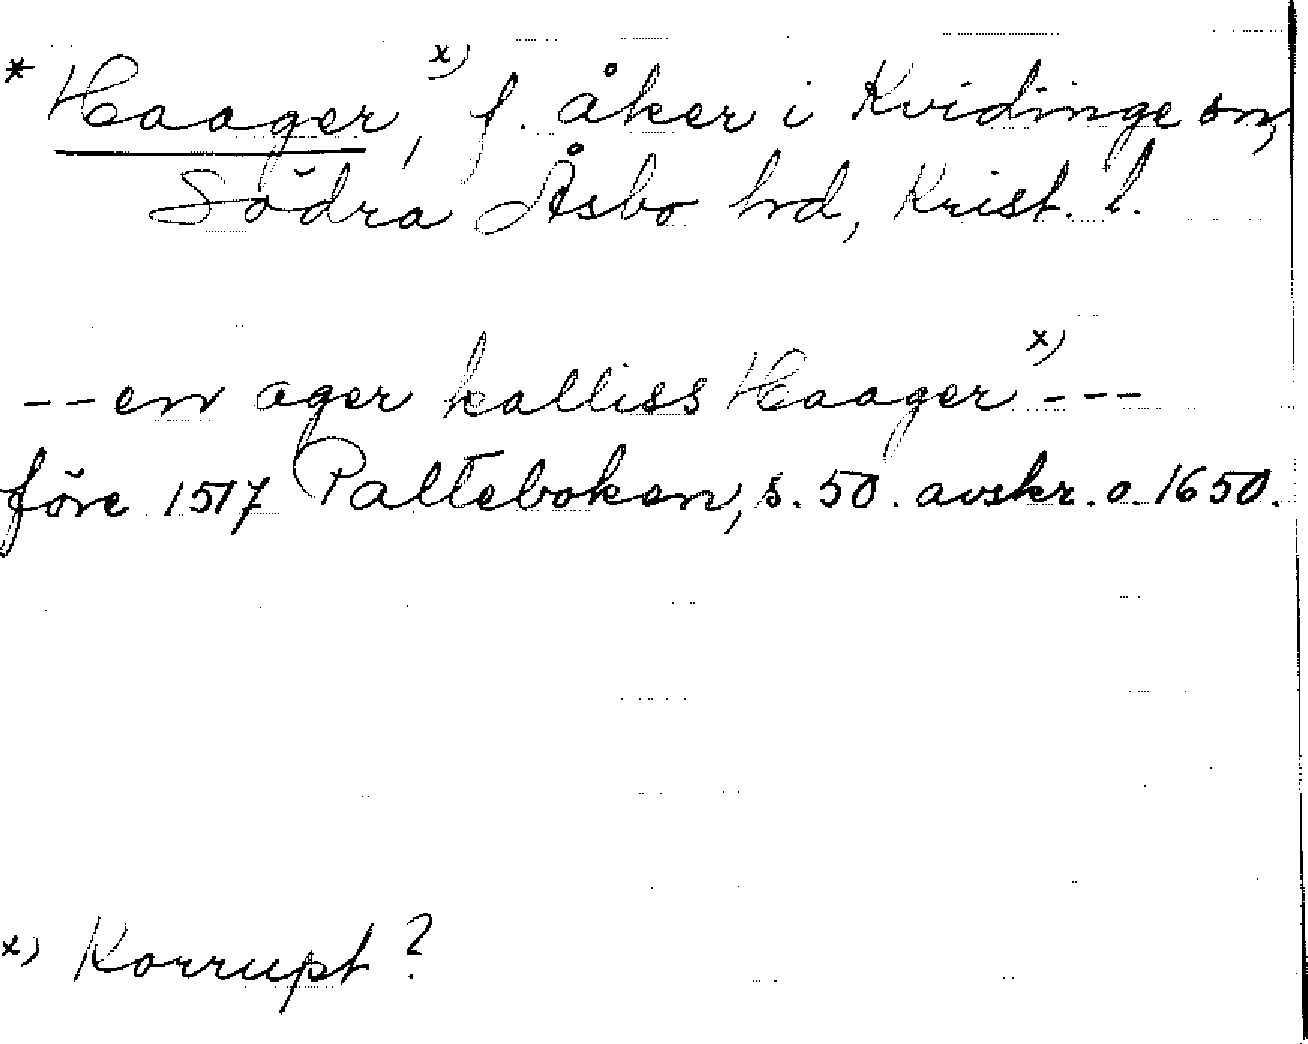 * Haager,x) f. åker i Kvidinge sn,
Södra Åsbo hd, Krist. l.
--en ager kalliss Haagerx)---
före 1517 Palteboken, s. 50. avskr. o. 1650.
x) Korrupt?